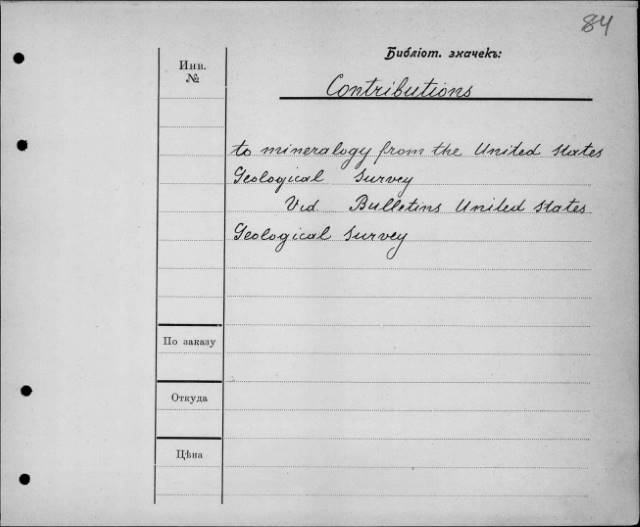 84
Библіот. значекъ:
Инв.
№
Contributions
to mineralogy from the United States
Geological Survey
Vid. Bulletins United States
Geological Survey
По заказу
Откуда
Цѣна